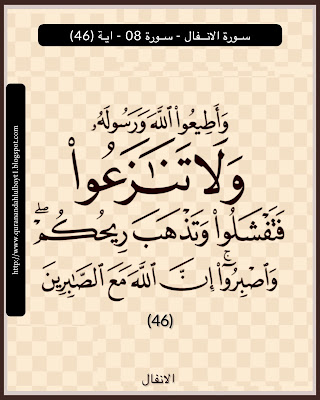 سورة الانفال - سورة 08 - اية (46)
وَأَطِيعُوا۟ ٱللَّهَ وَرَسُولَهُۥ
وَلَا تَنَـٰزَعُوا۟
فَتَفْشَلُوا۟ وَتَذْهَبَ رِيحُكُمْ ۖ
وَٱصْبِرُوٓا۟ ۚ إِنَّ ٱللَّهَ مَعَ ٱلصَّـٰبِرِينَ
(46)
الانفال
http://www.quranandahlulbayt1.blogspot.com